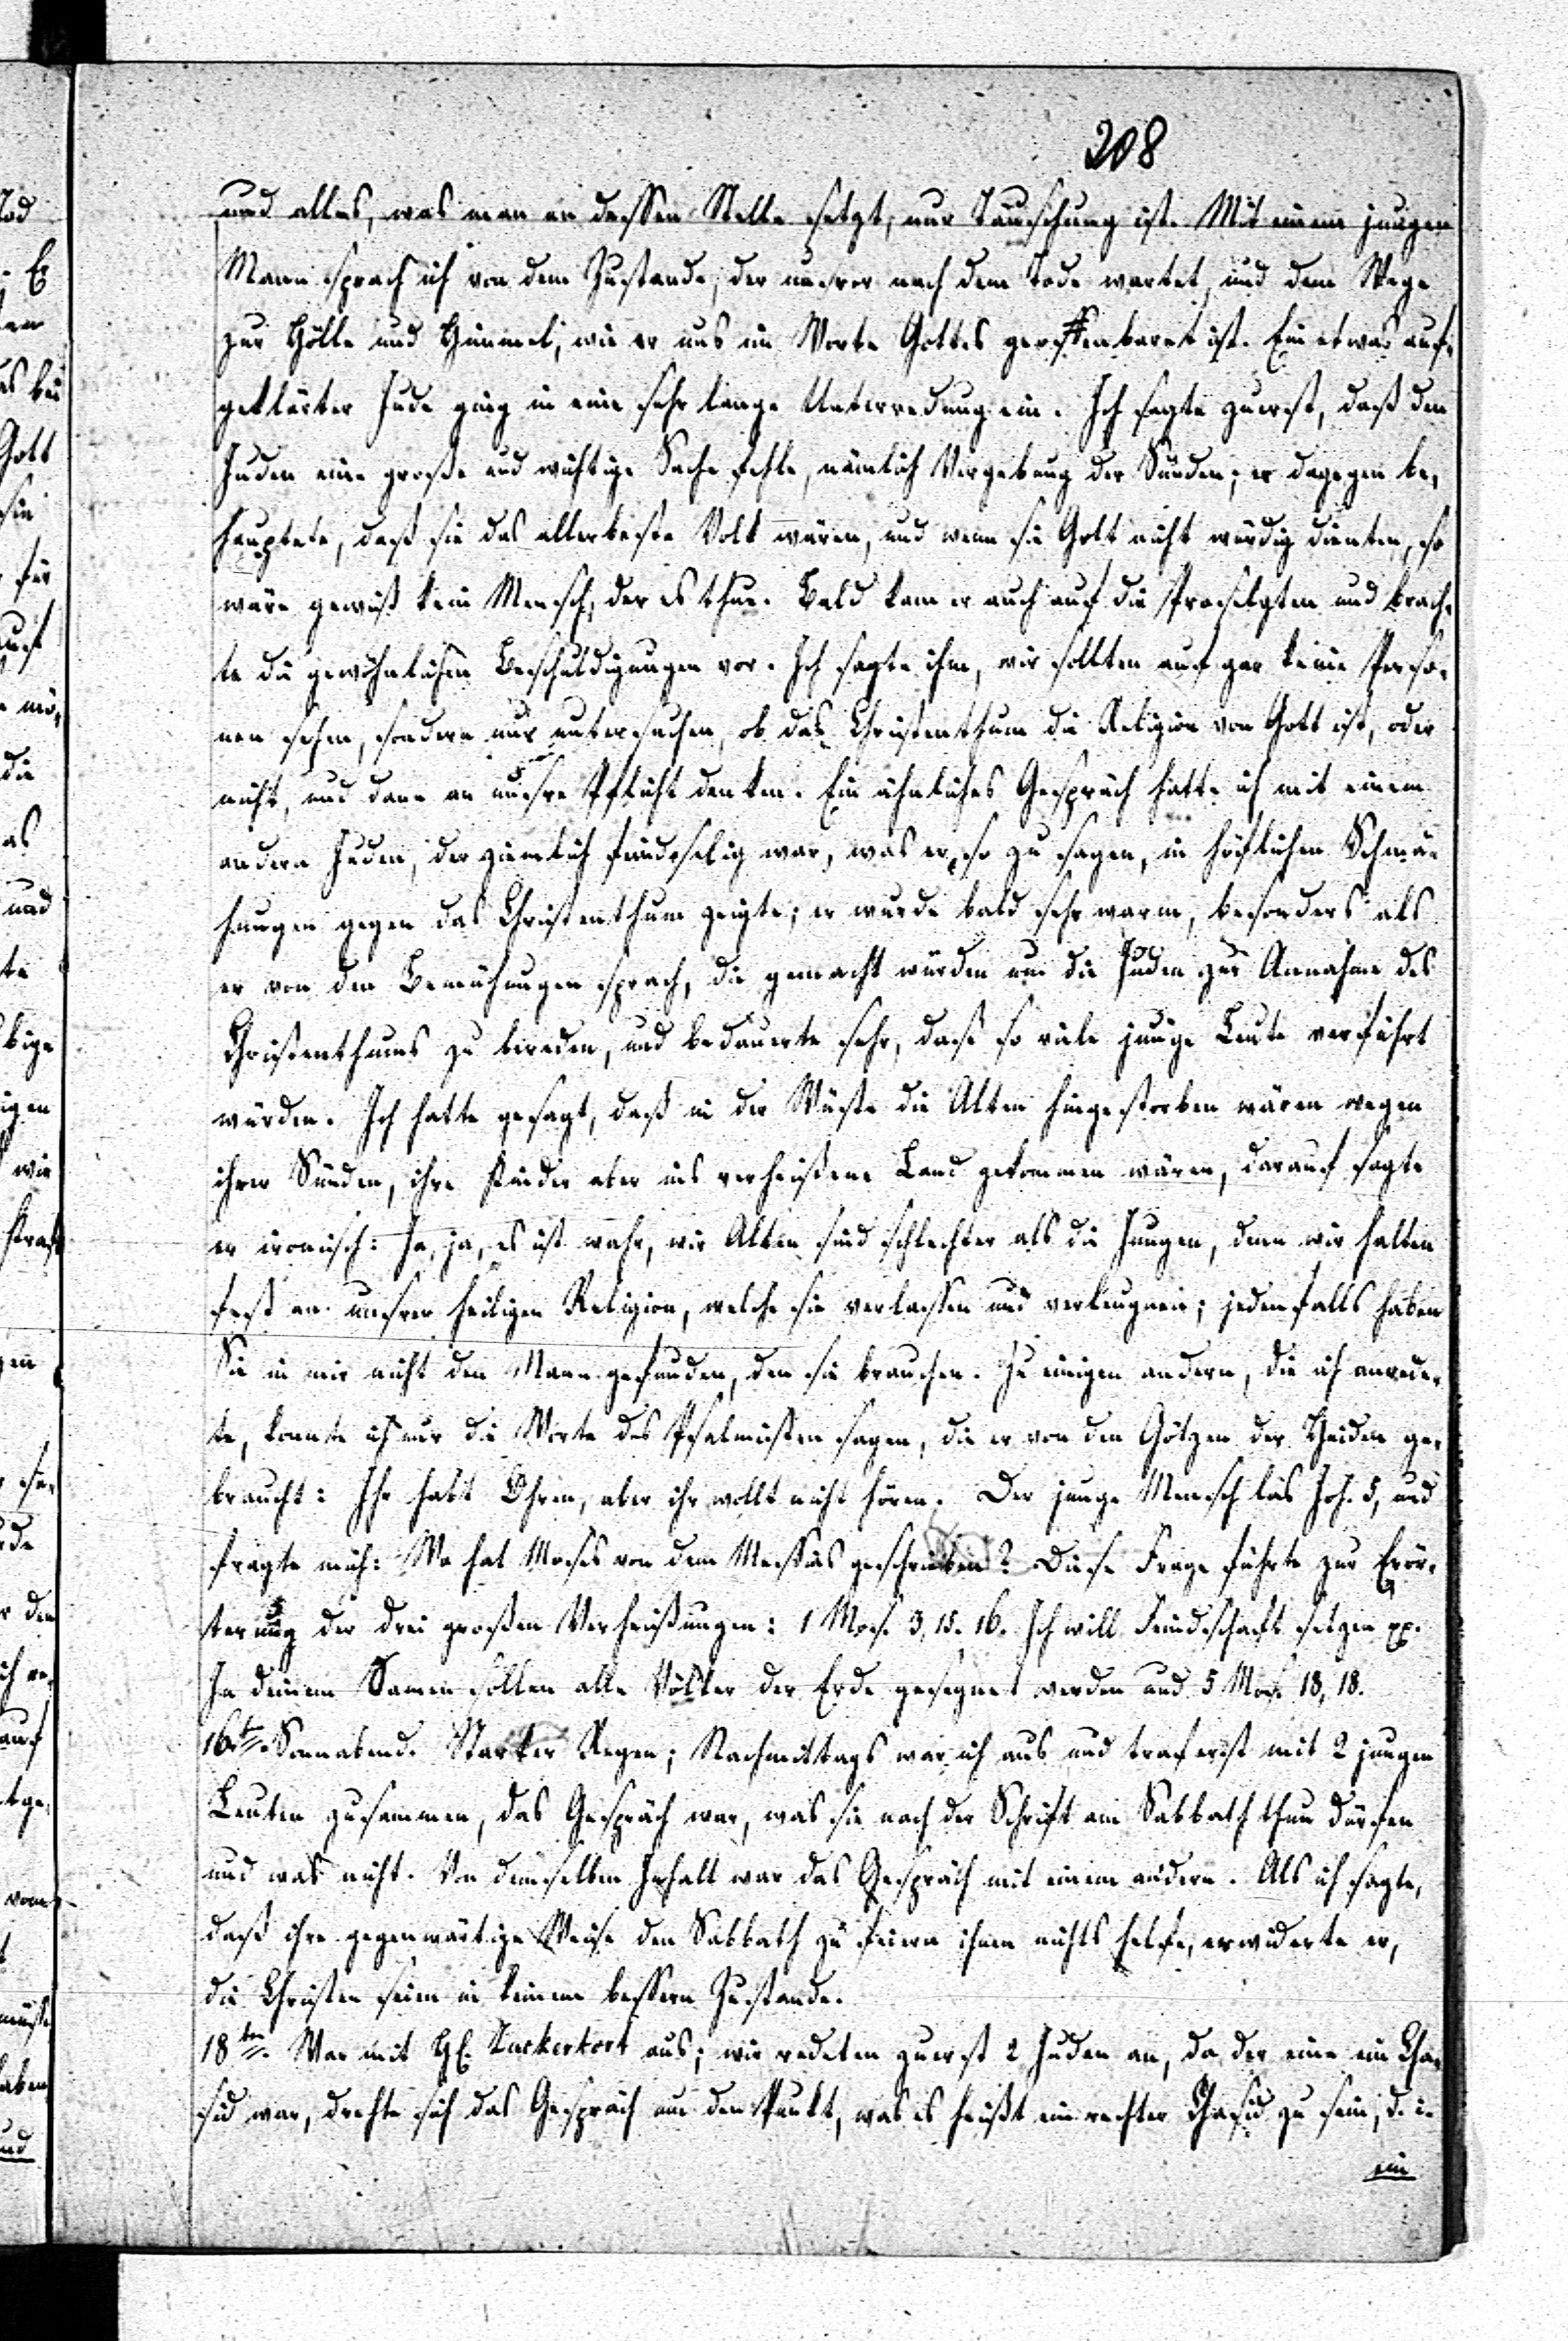 208
und alles, was man an dessen Stelle setzt, nur Täuschung ist. Mit einem jungen
Mann sprach ich von dem Zustande, der unsrer nach dem Tode wartet, und dem Wege
zur Hölle und Himmel, wie er uns im Worte Gottes geoffenbaret ist. Ein etwas auf-
geklärter Jude ging in eine sehr lange Unterredung ein. Ich sagte zuerst, daß den
Juden eine große und wichtige Sache fehle, nämlich Vergebung der Sünden; er dagegen be-
hauptete, daß sie das allerbeste Volk wären, und wenn sie Gott nicht würdig dienten, so
wäre gewiß kein Mensch, der es thue. Bald kam er auch auf die Proselyten und brach-
te die gewöhnlichen Beschuldigungen vor. Ich sagte ihm, wir sollten auf gar keine Perso-
nen sehen, sondern nur untersuchen, ob das Christenthum die Religion von Gott ist, oder
nicht, und dann an unsre Pflicht denken. Ein ähnliches Gespräch hatte ich mit einem
andern Juden, der ziemlich feindselig war, was er, so zu sagen, in höflichen Schmä-
hungen gegen das Christenthum zeigte; er wurde bald sehr warm, besonders als
er von den Bemühungen sprach, die gemacht würden um die Juden zur Annahme des
Christenthums zu bereden, und bedauerte sehr, daß so viele junge Leute verführt
würden. Ich hatte gesagt, daß in der Wüste die Alten hingestorben wären wegen
ihrer Sünden, ihre Kinder aber ins verheißene Land gekommen wären, darauf sagte
er ironisch: Ja, ja, es ist wahr, wir Alten sind schlechter als die Jungen, denn wir halten
fest an unsrer heiligen Religion, welche sie verlassen und verleugnen; jedenfalls haben
Sie in mir nicht den Mann gefunden, den sie brauchen. Zu einigen andern, die ich anrede-
te, konnte ich nur die Worte des Psalmisten sagen, die er von den Götzen der Heiden ge-
braucht: Ihr habt Ohren, aber ihr wollt nicht hören. Der junge Mensch las Joh. 5, und
fragte mich: Wo hat Moses von dem Messias geschrieben? Diese Frage führte zur Erör-
terung der drei großen Verheißungen: 1 Mos. 3, 15. 16. Ich will Feindschaft setzen pp.
In deinem Samen sollen alle Völker der Erde gesegnet werden und 5 Mos. 18, 18.
16te. Sonnabend. Starker Regen; Nachmittags war ich aus und traf erst mit 2 jungen
Leuten zusammen, das Gespräch war, was sie nach der Schrift am Sabbath thun dürfen
und was nicht. Von demselben Inhalt war das Gespräch mit einem andern. Als ich sagte,
daß ihre gegenwärtige Weise den Sabbath zu feiern ihnen nichts helfe, erwiderte er,
die Christen seien in keinem bessern Zustande.
18ten. War mit H. Zuckertort aus; wir redeten zuerst 2 Juden an, da der eine ein Cha-
sid war, drehte sich das Gespräch um den Punkt, was es heißt ein rechter Chasid zu sein, d. i.
ein